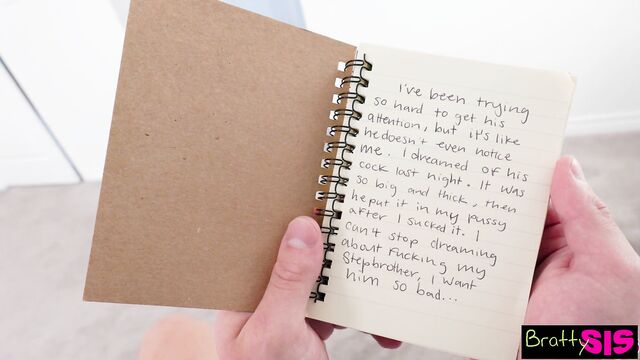 I've been trying
so hard to get his
attention, but it's like
he doesn't even notice
me. I dreamed of his
cock last night. It was
so big and thick, then
he put it in my pussy
after I sucked it. I
can't stop dreaming
about fucking my
Stepbrother, I want
him so bad...
Bratty SIS